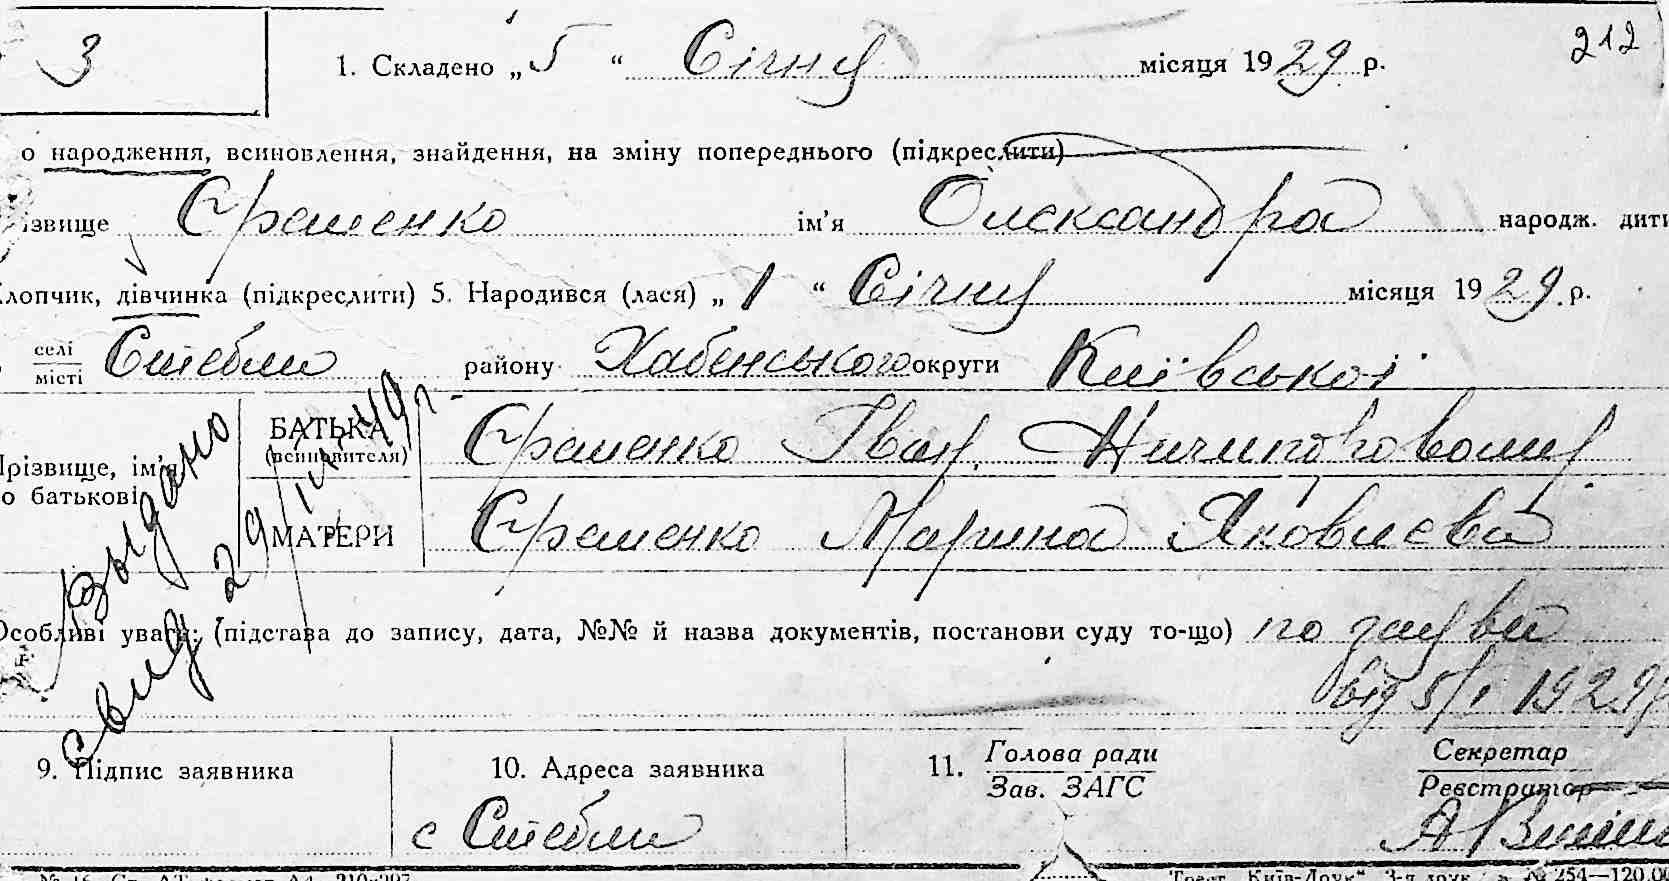 3
1. Складено „ 5 “ Січня місяця 1929 р.
212
о народження, всиновлення, знайдення, на зміну попереднього (підкреслити)
ізвище Єременко ім'я Олександра народж. дити
лопчик, дівчинка (підкреслити) 5. Народився (лася) „ 1 “ Січня місяця 1929 р.
селі
місті Стебли району Хабенського округи Київської
Прізвище, ім'я
о батькові
БАТЬКА
(всиновителя) Єременко Іван Ничипорович
МАТЕРИ Єременко Марина Яковлева
Выдано
свид 29/ІІІ 49 г.
Особливі уваги: (підстава до запису, дата, №№ й назва документів, постанови суду то-що) по заяви
від 5/I 1929 р
9. Підпис заявника
10. Адреса заявника
с Стебли
11. Голова ради
Зав. ЗАГС
Секретар
Реєстратор
№ 16. Ст. А4 210×297
Трест „Київ-Друк“ 3-я друк. № 254—120.00